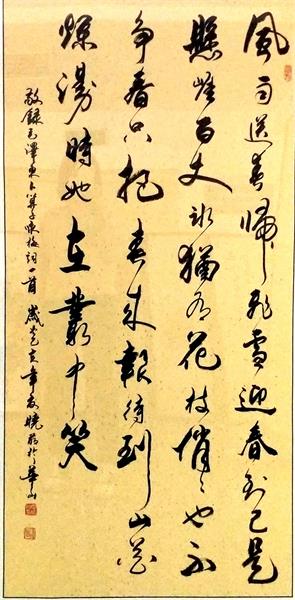 風雨送春歸飛雪迎春到已是
懸崖百丈冰猶有花枝俏〻也不
爭春只把春來報待到山花
爛漫時她在叢中笑
敬錄毛澤東卜算子詠梅詞一首 歲 亥年 曉 於華山